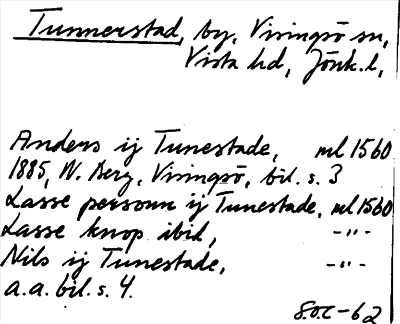 Tunnerstad, by, Visingsö sn,
Vista hd, Jönk. l,
Anders ij Tunestade, ml 1560
1885, W. Berg, Visingsö, bil. s. 3
Lasse persoun ij Tunestade, ml 1560
Lasse knop ibid, -"-
Nils ij Tunestade, -"-
a.a. bil. s. 4.
S.O.C-62